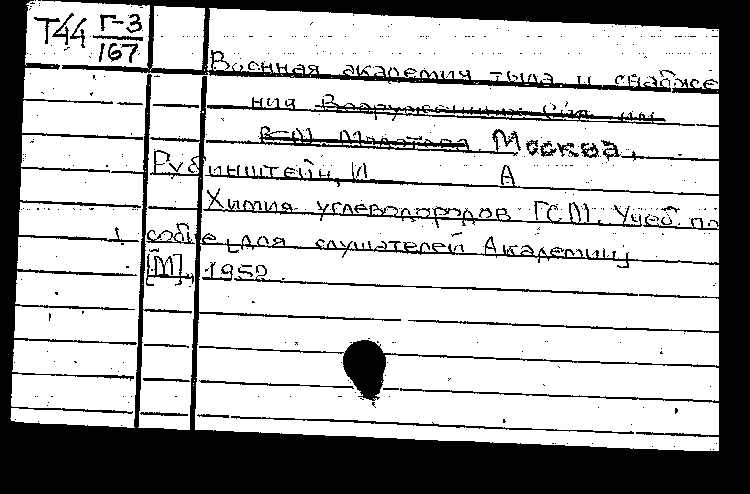 Т44 Г-3
167
Военная академия тыла и снабже
ния Вооруженных Сил им
В.М. Молотова Москва.
Рубинштейн, И А
Химия углеводородов ГСМ. Учеб по
собие для слушателей Академии
[М]., 1952.